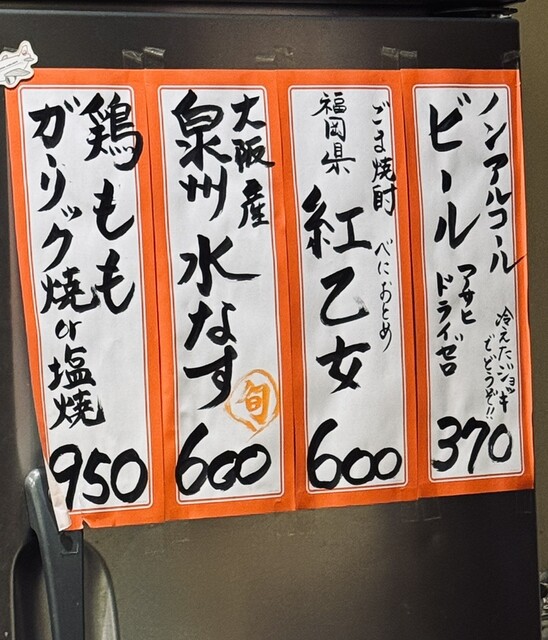 ノンアルコール
ビール
アサヒ
ドライゼロ
冷えたジョッキ
でどうぞ!!
370
ごま焼酎
福岡県
べにおとめ
紅乙女
600
大阪産
泉州水なす
旬
600
鶏もも
ガーリック焼or塩焼
950